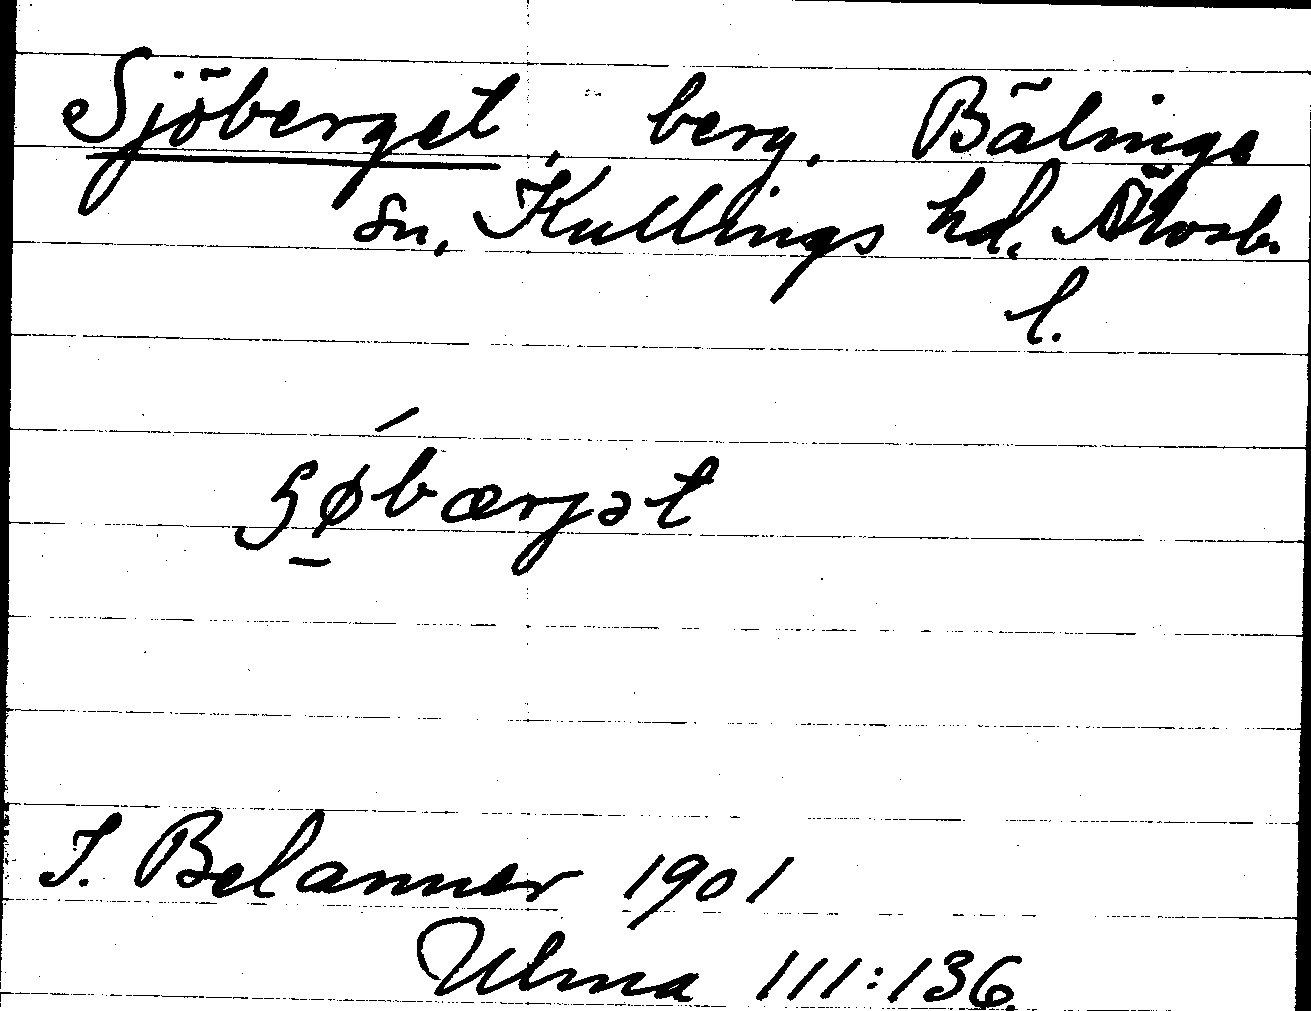 Sjöberget, berg. Bälinge
sn, Kullings hd. Älvsb.
l.
ʂǿ̱bærjət
J. Belanner 1901
Ulma 111:136.